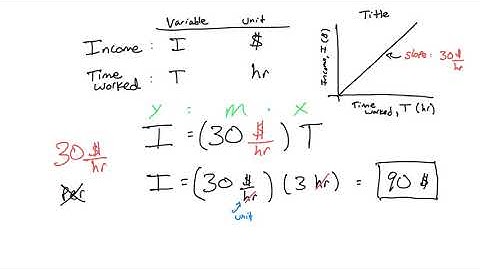 Variable unit
Income : I $
Time worked : T hr
Title
Income, I ($)
slope : 30 $/hr
Time worked, T (hr)
y = m · x
I = (30 $/hr) T
30 $/hr
per
I = (30 $/hr) (3 hr) = 90 $
unit